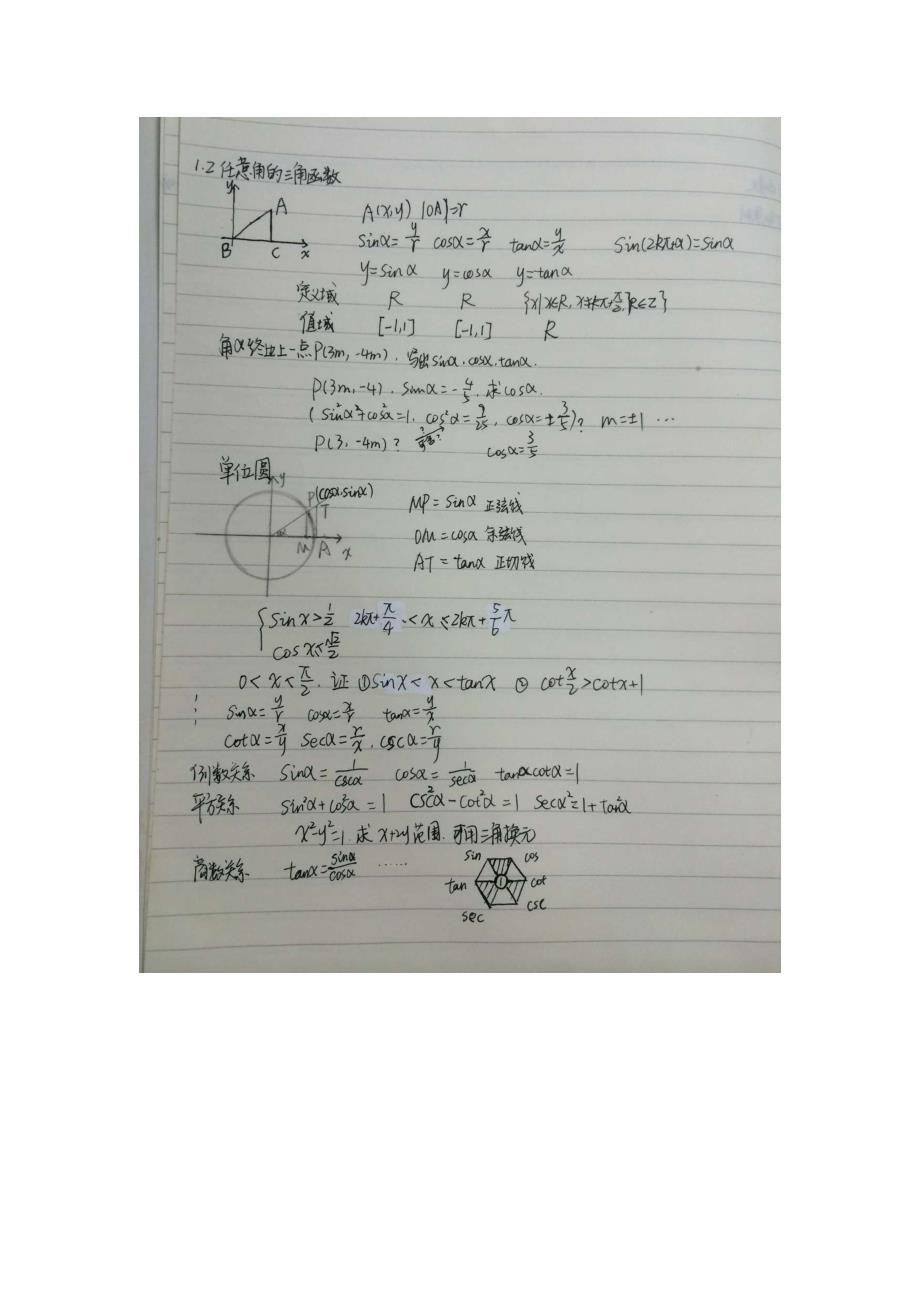 1.2 任意角的三角函数
y
A
B C x
A(x,y) |OA|=r
sinα=y/r cosα=x/r tanα=y/x sin(2kπ+α)=sinα
y=sinα y=cosα y=tanα
定义域 R R {x|x∈R, x≠kπ+π/2, k∈Z}
值域 [-1,1] [-1,1] R
角α终边上一点P(3m, -4m), 写出sinα.cosα.tanα.
P(3m,-4). sinα=-4/5. 求cosα.
(sin²α+cos²α=1. cos²α=9/25, cosα=±3/5)? m=±1 …
P(3,-4m)? cosα=3/5
单位圆
y
P(cosα,sinα)
T
α
M A x
MP=sinα 正弦线
OM=cosα 余弦线
AT=tanα 正切线
{ sinx>1/2 2kπ+π/4 <x≤2kπ+5/6π
cosx≤√2/2
0<x<π/2. 证 ①sinx<x<tanx ② cot x/2>cotx+1
sinα=y/r cosα=x/r tanα=y/x
cotα=x/y secα=r/x. cscα=r/y
倒数关系 sinα=1/cscα cosα=1/secα tanαcotα=1
平方关系 sin²α+cos²α=1 csc²α-cot²α=1 secα²=1+tan²α
x²-y²=1. 求x+2y范围. 可用三角换元
商数关系 tanα=sinα/cosα ……
sin cos
tan 1 cot
sec csc